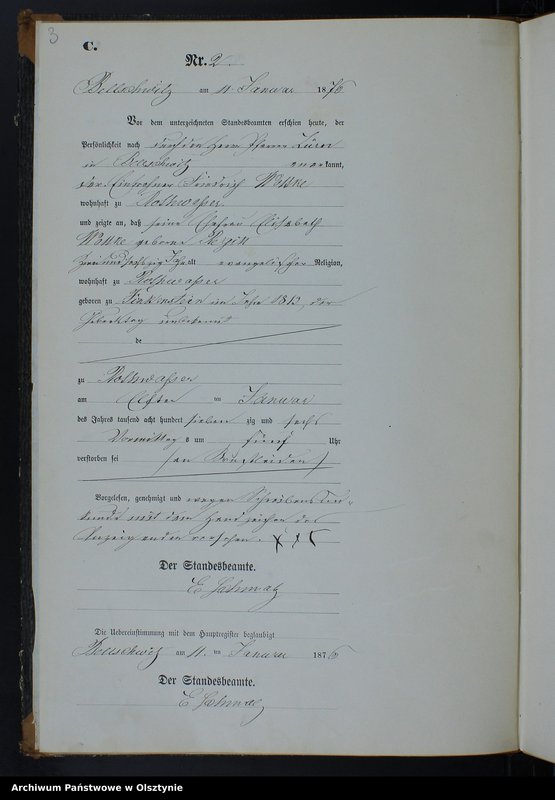 3
C.
Nr. 2.
am 11. Januar 1876
Vor dem unterzeichneten Standesbeamten erschien heute, der
Persönlichkeit nach durch den Herrn Pfarrer
in anerkannt,
der Einwohner Friedrich
wohnhaft zu Rothwasser
und zeigte an, daß seine Ehefrau Elisabeth
geborne
zwei und sechszig Jahre alt evangelischer Religion,
wohnhaft zu Rothwasser
geboren zu Finkenstein im Jahre 1813, der
Geburtstag unbekannt
de
zu Rothwasser
am Elften ten Januar
des Jahres tausend acht hundert sieben zig und sechs
Vormittags um fünf Uhr
verstorben sei (an Brustleiden)
Vorgelesen, genehmigt und wegen Schreibens Un-
kunde mit dem Handzeichen des
Anzeigenden versehen. XXX
Der Standesbeamte.
Die Uebereinstimmung mit dem Hauptregister beglaubigt
am 11. ten Januar 1876
Der Standesbeamte.
Archiwum Państwowe w Olsztynie